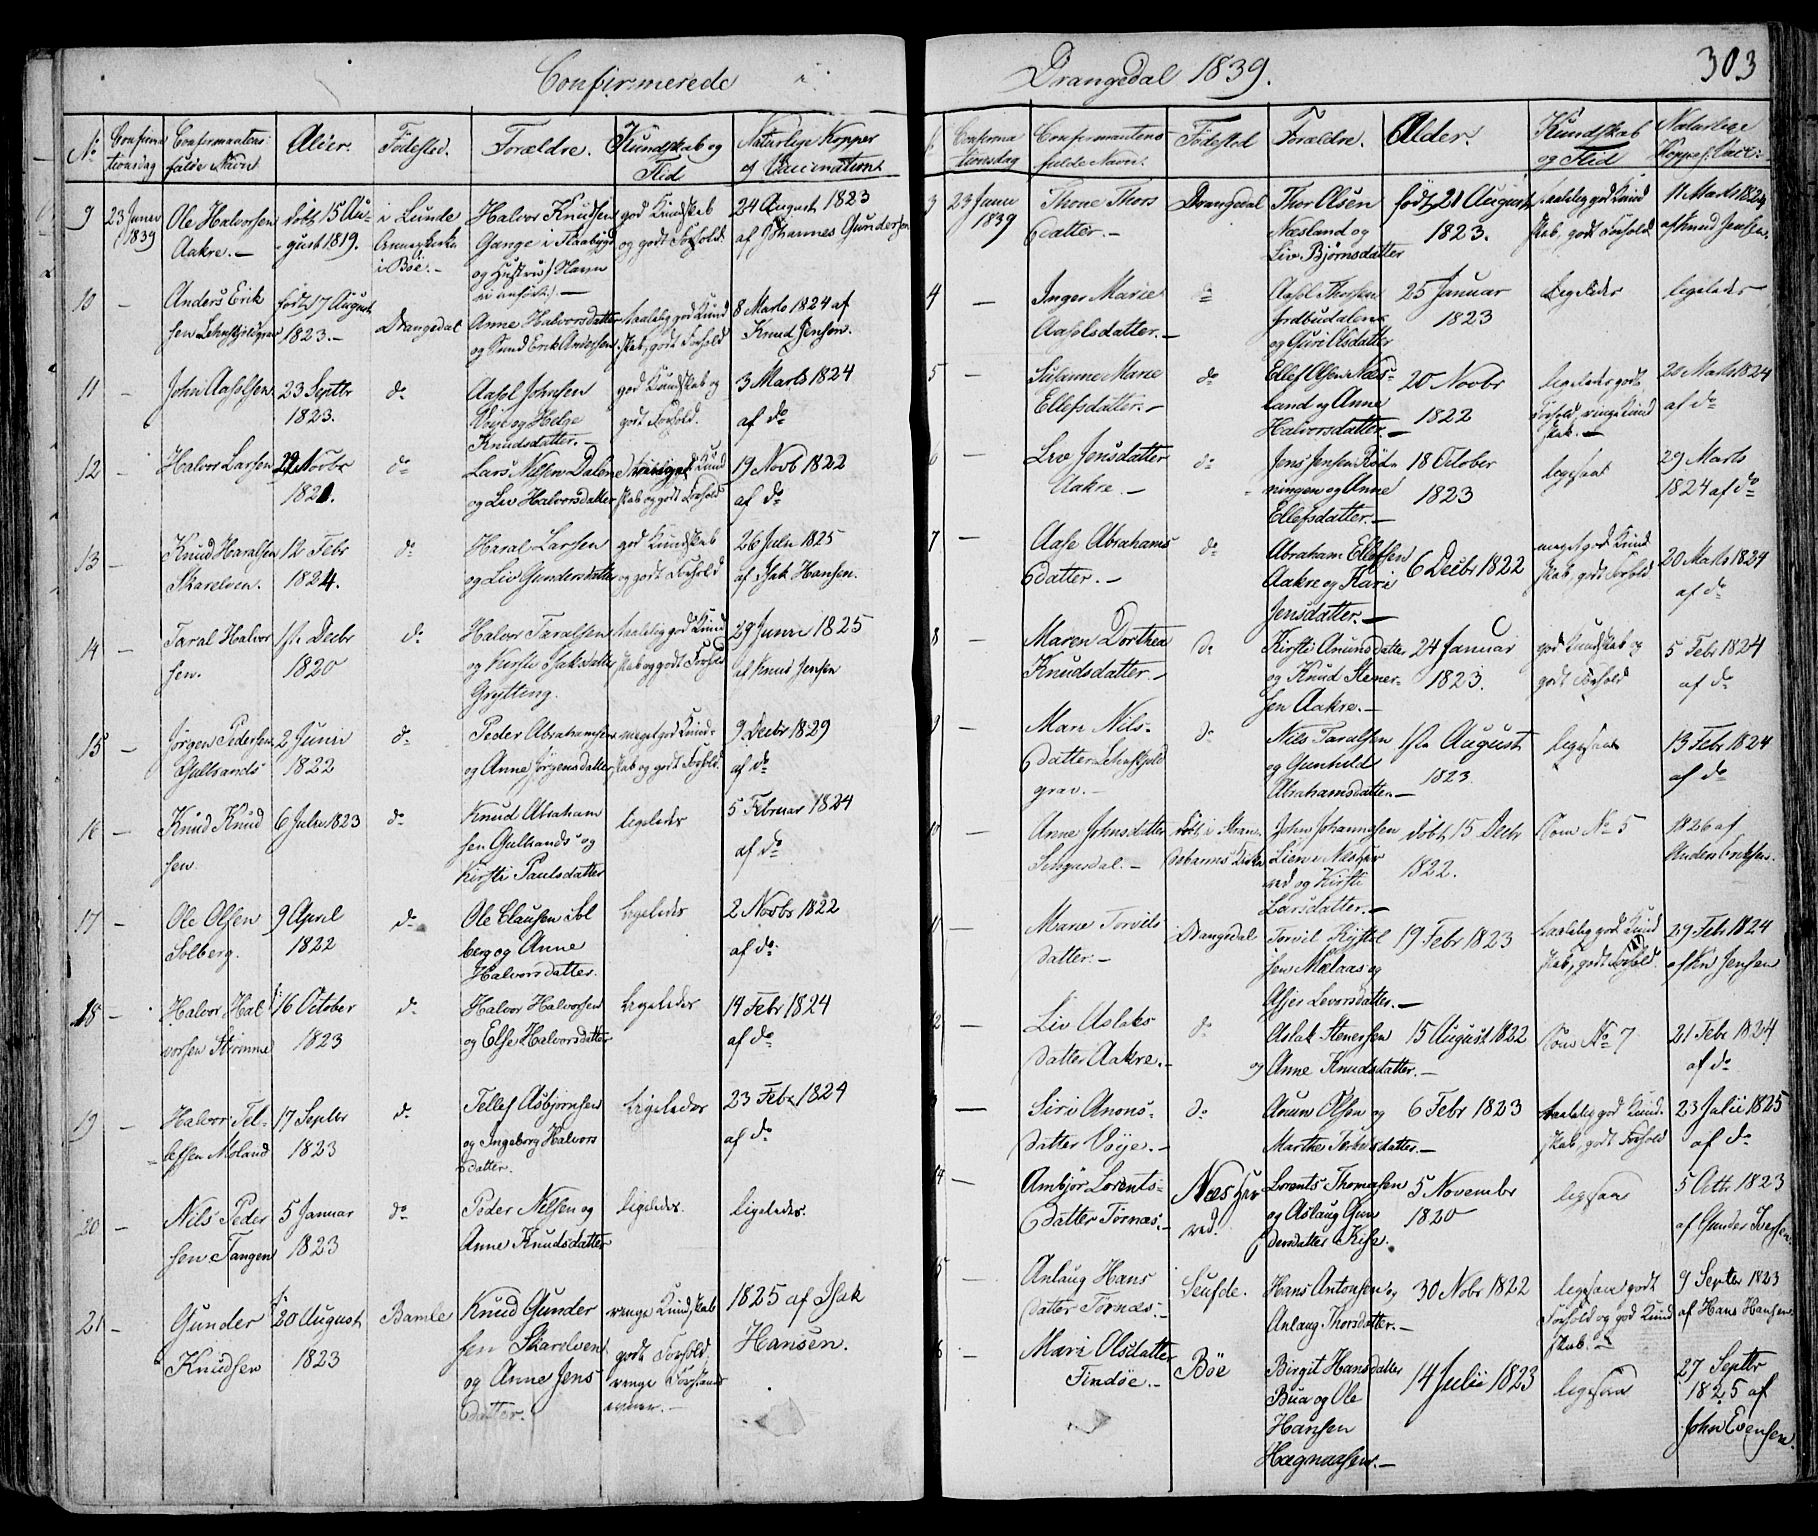 Confirmerede i
No Confirmationsdag Confirmantens fulde Navn Alder. Fødested. Forældre. Kundskab og Flid Naturlige Kopper el Vaccination
9 23 Juni 1839 Ole Halvorsen Aakre.— født 15 August 1819. i Lunde Annexkirke i Bøe.— Halvor Knudsen og Hustru god Kundskab og godt Forhold. 24 August 1823 af Johannes Gundersen
10 — Anders Eriksen født 17 August 1823.— Drangedal Anne Halvorsdatter og Erik Andersen taalelig god Kundskab, godt Forhold 8 Marts 1824 af Knud Jensen.
11 — John Aasolsen 23 Septbr 1823. do Aasol Johnsen Voje og Helge Knudsdatter.— god Kundskab og godt Forhold. 3 Marts 1824 af do
12 — Halvor Larsen Novbr 1821. do Lars Nilsen Dalen og Liv Halvorsdatter Kundskab og godt Forhold 19 Novb 1822 af do
13 — Knud Haralsen Skarelven. 12 Febr 1824. do Haral Larsen og Liv Gundersdatter god Kundskab og godt Forhold 26 Juli 1825 af Isak Hansen.
14 — Taral Halvorsen. Decbr 1820 do Halvor Taralsen og Kirsti Isaksdatter Grytting. taalelig god Kundskab og godt Forhold 29 Juni 1825 af Knud Jensen
15 — Jørgen Pedersen 2 Juni 1822 do Peder Abrahamsen og Anne Jørgensdatter meget god Kundskab og godt Forhold. 9 Decbr 1829 af do
16 — Knud Knudsen. 6 Julii 1823 do Knud Abrahamsen og Kirsti Paulsdatter ligeledes 5 Februar 1824 af do
17 — Ole Olsen Solberg. 9 April 1822 do Ole Clausen Solberg og Anne Halvorsdatter. Ligeledes 2 Novbr 1822 af do
18 — Halvor Halvorsen Strømme 16 October 1823 do Halvor Halvorsen og Else Halvorsdatter Ligeledes 14 Febr 1824 af do
19 — Halvor Tellefsen Moland 17 Septbr 1823 do Tellef Asbjørnsen og Ingeborg Halvorsdatter. Ligeledes 23 Febr 1824 af do
20 — Nils Pedersen Tangen 5 Januar 1823 do Peder Nilsen og Anne Knudsdatter ligeledes. ligeledes.
21 — Gunder Knudsen 20 August 1823 Bamle Knud Gundersen Skarelven og Anne Jensdatter. ringe Kundskab godt Forhold. ringe Forstands evner.— 1825 af Isak Hansen.
Drangedal 1839. 303
Confirmationsdag Confirmantens fulde Navn. Fødested Forældre. Alder. Kundskab og Flid Naturlige Kopper el. Vacci:
3 23 Juni 1839 Thone Thorsdatter.— Drangedal Thor Olsen Næsland og Liv Bjørnsdatter født 21 August 1823. taalelig god Kundskab, godt Forhold 11 Marts 1824 af Knud Jensen.
4 — Inger Marie Aasolsdatter.— do Aasol Thorsen og Guri Olsdatter 25 Januar 1823 Ligeledes ligeledes
5 — Susanne Marie Ellefsdatter.— do Ellef Olsen Næsland og Anne Halvorsdatter.— 20 Novbr 1822 ligeledes godt Forhold, ringe Kundskab.— 20 Marts 1824 af do
6 Liv Jensdatter Aakre.— do Jens Jensen Rødningen og Anne Ellefsdatter.— 18 October 1823 ligesaa 29 Marts 1824 af do
7 — Aase Abrahamsdatter.— do Abraham Ellefsen Aakre og Kari Jensdatter.— 6 Decbr 1822 meget god Kundskab, godt Forhold 20 Marts 1824 af do
8 — Maren Dorthea Knudsdatter.— do Kirsti Anundsdatter og Knud Stenersen Aakre.— 24 Januar 1823. god Kundskab og godt Forhold 5 Febr 1824 af do
9 — Mari Nilsdatter do Nils Taralsen og Gunhild Abrahamsdatter.— August 1823. ligesaa 13 Febr 1824 af do
10 — Anne Johnsdatter.— født i Kirke John Johannesen Lien i Næsherred og Kirsti Larsdatter.— født 15 Decbr 1822. Som No 5 1826 af Anders Eriksen.
11 — Marie Torvilsdatter.— Drangedal Torvil og Levorsdatter.— 19 Febr 1823 taalelig god Kundskab, godt Forhold. 29 Feb 1824 af Kn Jensen
12 — Liv Aslaksdatter Aakre.— do Aslak Stenersen og Anne Knudsdatter.— 15 August 1822 Som No 7 21 Febr 1824 af do
— Siri Anonsdatter Voje.— do Anun Olsen og Marthe 6 Febr 1823 taalelig god Kundskab, godt Forhold 23 Julii 1825 af do
14 — Ambjør Lorentsdatter Tørnæs.— Næs Herred. Lorents Thomesen og Aslaug Gundersdatter 5 November 1820 ligesaa 5 Octb. 1823 af Gunder Iversen.
5 — Anlaug Hansdatter Tørnæs.— Seufde. Hans Antonsen og Anlaug Thorsdatter.— 30 Nobr 1822 ligesaa godt Forhold og god Kundskab.— 9 Septbr 1823 af Hans Hansen
6 — Mari Olsdatter Findøe.— Bøe Birgit Hansdatter Bua og Ole Hansen Hægnaasen.— 14 Julii 1823 ligesaa 27 Septbr 1825 af John Evensen.